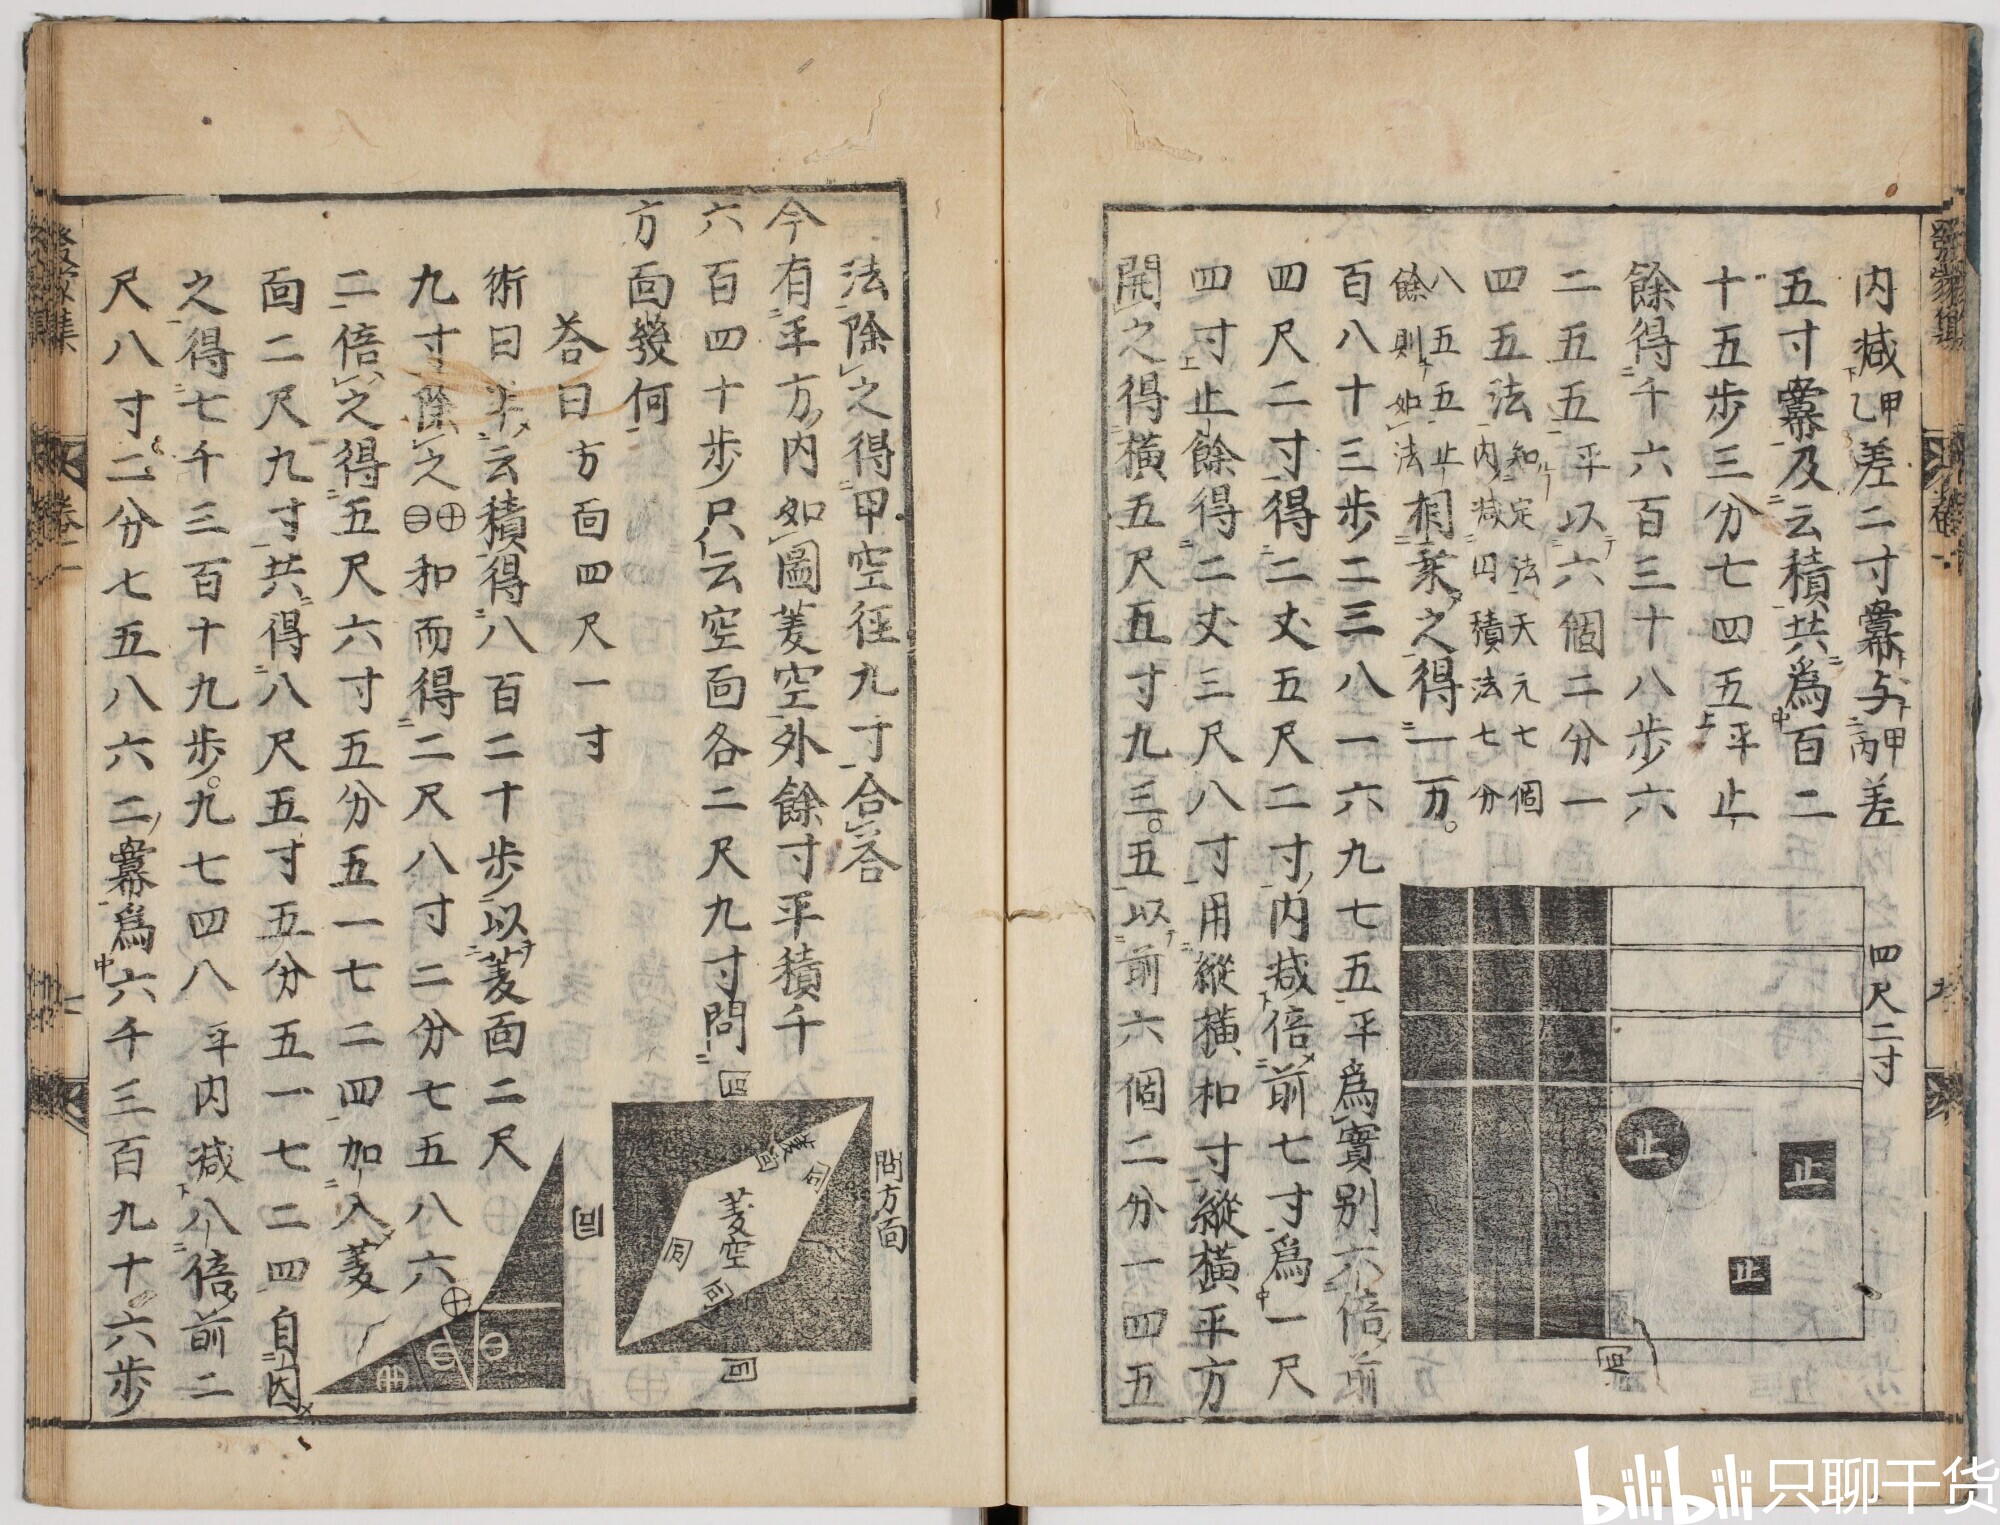 内減甲乙差二寸冪与甲丙差
五寸冪及云積共爲百二
十五歩三分七四五平止
餘得千六百三十八歩六
二五五平以六個二分一
四五法知定法天元七個
内減四積法七分
八五五五止
餘則如法相乗之得一万。
百八十三歩二三八一六九七五平爲實別六倍前
四尺二寸得二丈五尺二寸内減倍前七寸爲一尺
四寸止餘得二丈三尺八寸用縱横和寸縱横平方
開之得横五尺五寸九三。五以前六個二分一四五
四尺二寸
止
止
止
法除之得甲空径九寸合荅
今有平方内如圖菱空外餘寸平積千
六百四十歩只云空面各二尺九寸問
方面幾何
荅曰方面四尺一寸
術曰半云積得八百二十歩以菱面二尺
九寸除之㊀㊉和而得二尺八寸二分七五八六
二倍之得五尺六寸五分五一七二四加入菱
面二尺九寸共得八尺五寸五分五一七二四自因
之得七千三百十九歩。九七四八平内減八倍前二
尺八寸二分七五八六二冪爲六千三百九十六歩
問方面
菱空
菱面
同
同
同